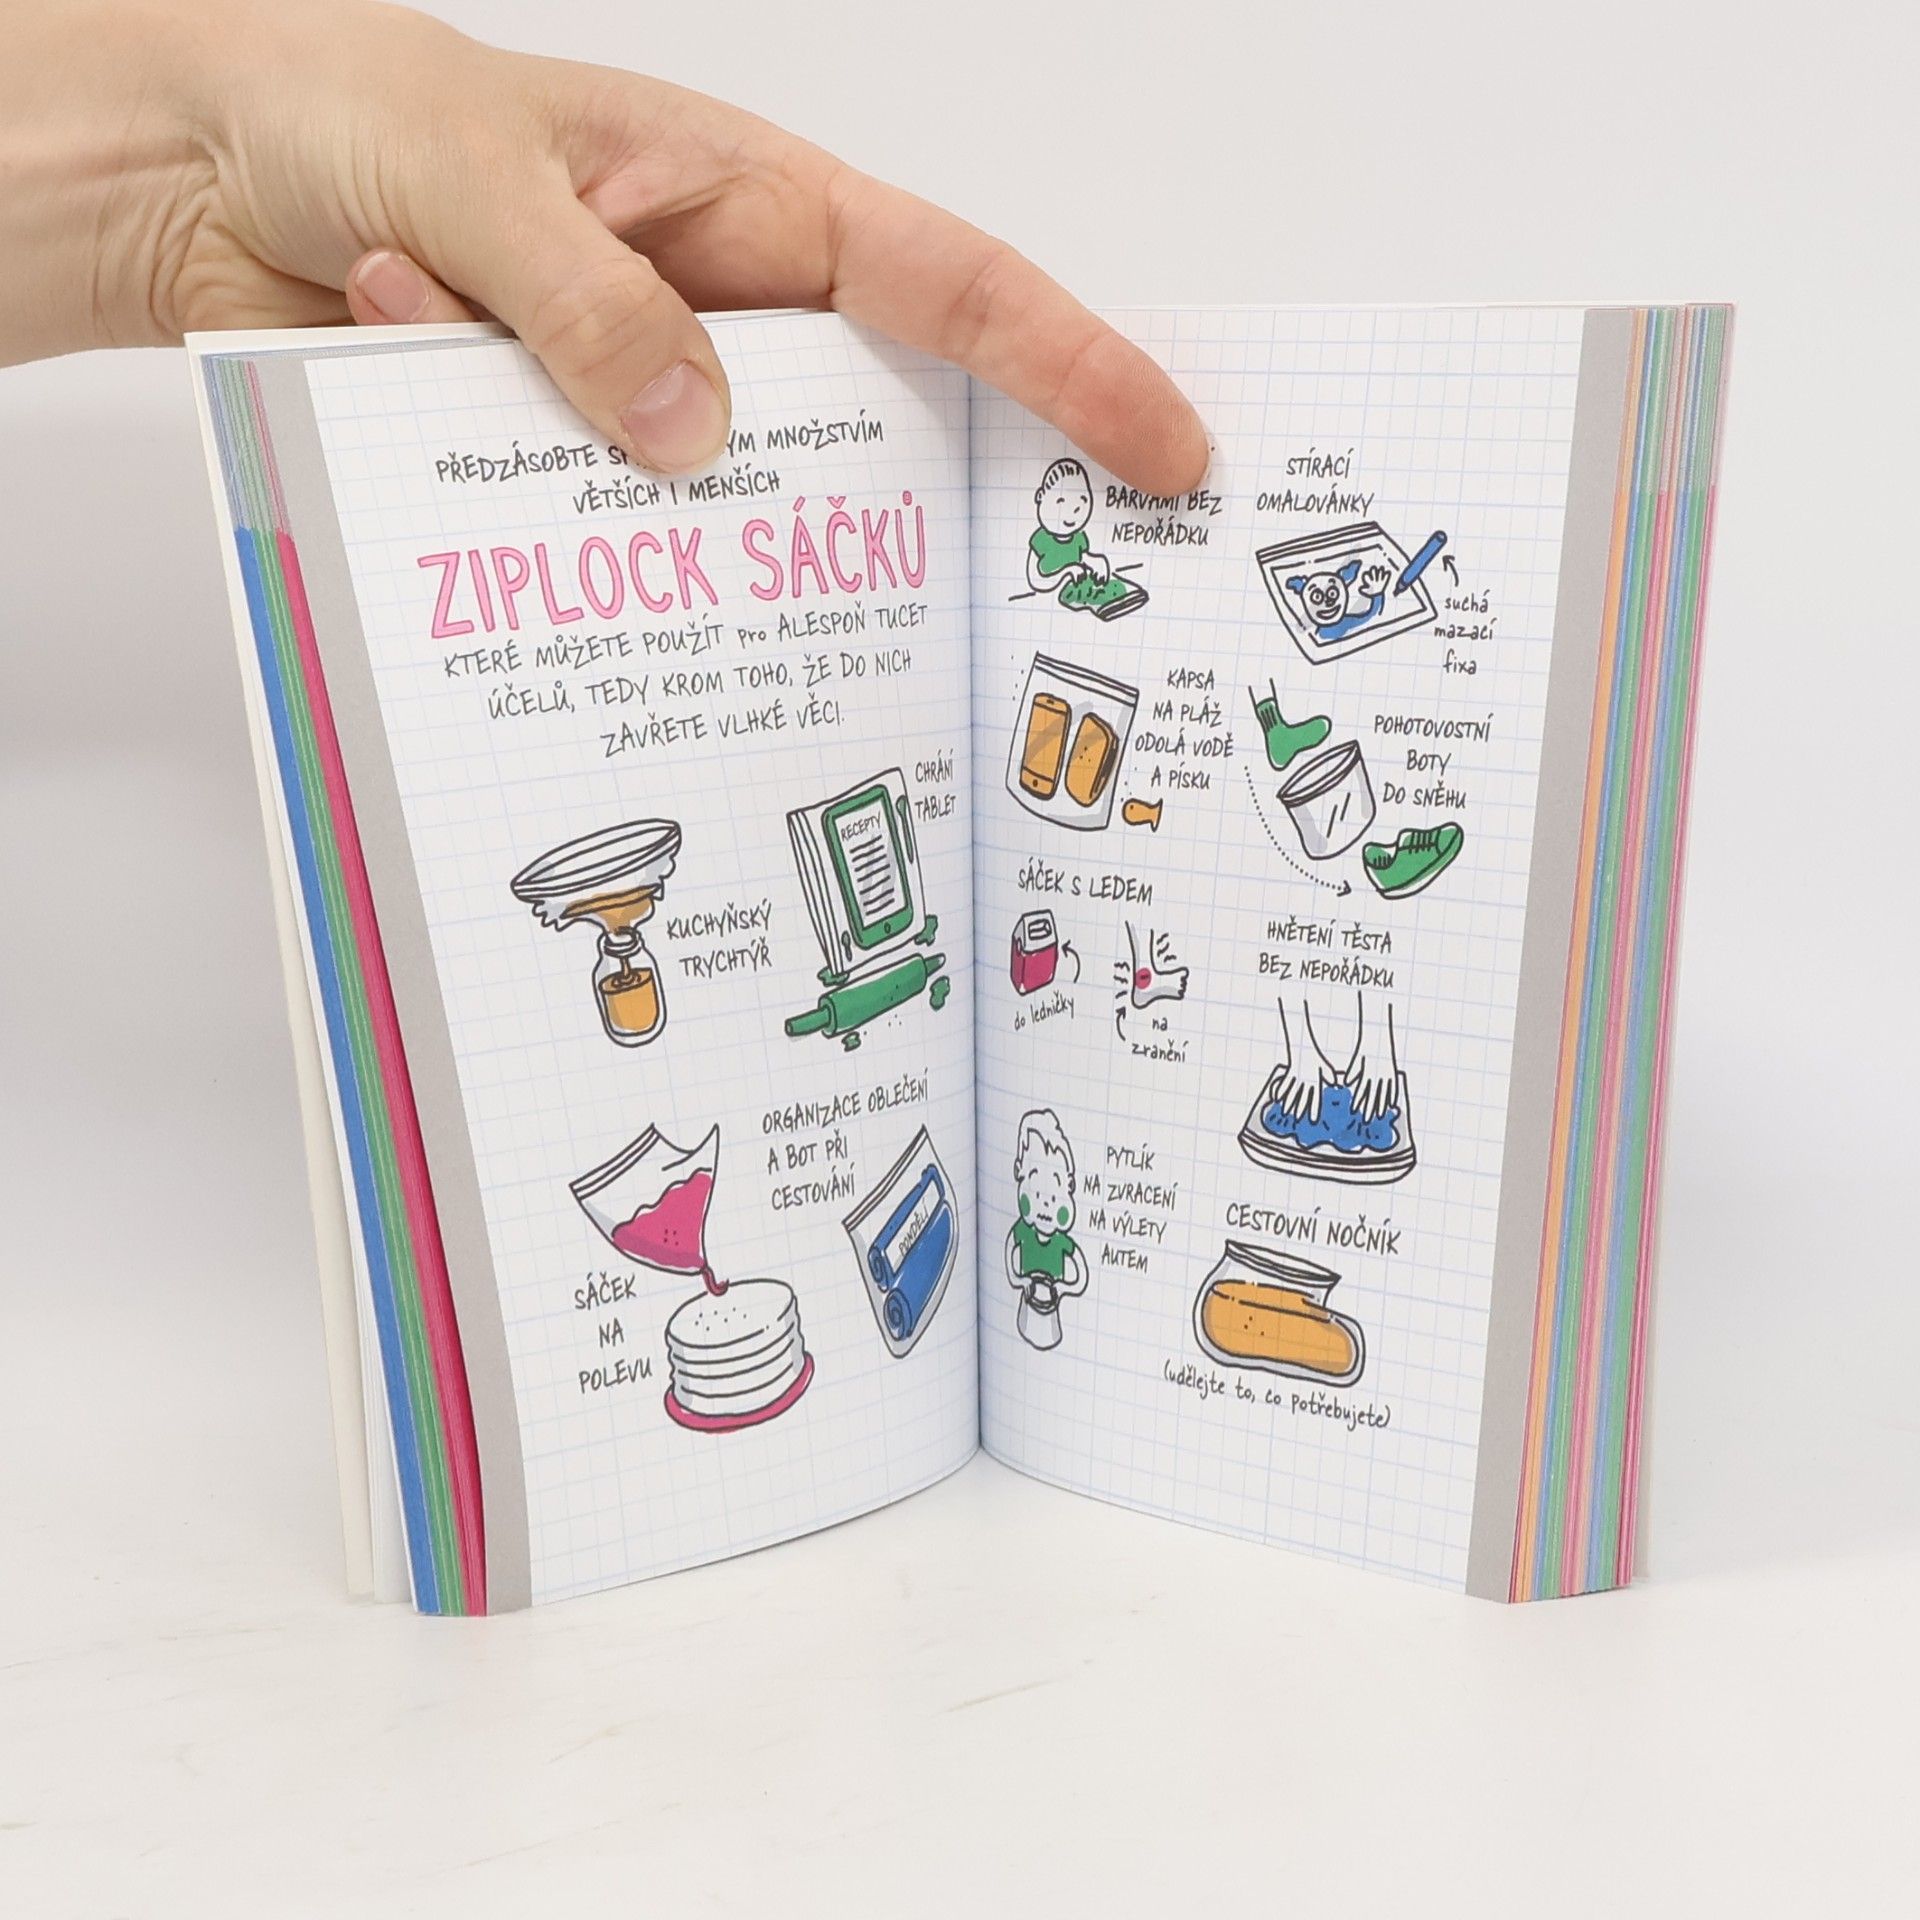 PŘEDZÁSOBTE MNOŽSTVÍM
VĚTŠÍCH I MENŠÍCH
ZIPLOCK SÁČKŮ
KTERÉ MŮŽETE POUŽÍT pro ALESPOŇ TUCET
ÚČELŮ, TEDY KROM TOHO, ŽE DO NICH
ZAVŘETE VLHKÉ VĚCI.
CHRÁNÍ
TABLET
RECEPTY
KUCHYŇSKÝ
TRYCHTÝŘ
ORGANIZACE OBLEČENÍ
A BOT PŘI
CESTOVÁNÍ
PONDĚLÍ
SÁČEK
NA
POLEVU
BARVAMI BEZ
NEPOŘÁDKU
STÍRACÍ
OMALOVÁNKY
suchá
mazací
fixa
KAPSA
NA PLÁŽ
ODOLÁ VODĚ
A PÍSKU
POHOTOVOSTNÍ
BOTY
DO SNĚHU
SÁČEK S LEDEM
do ledničky
na
zranění
HNĚTENÍ TĚSTA
BEZ NEPOŘÁDKU
PYTLÍK
NA ZVRACENÍ
NA VÝLETY
AUTEM
CESTOVNÍ NOČNÍK
(udělejte to, co potřebujete)